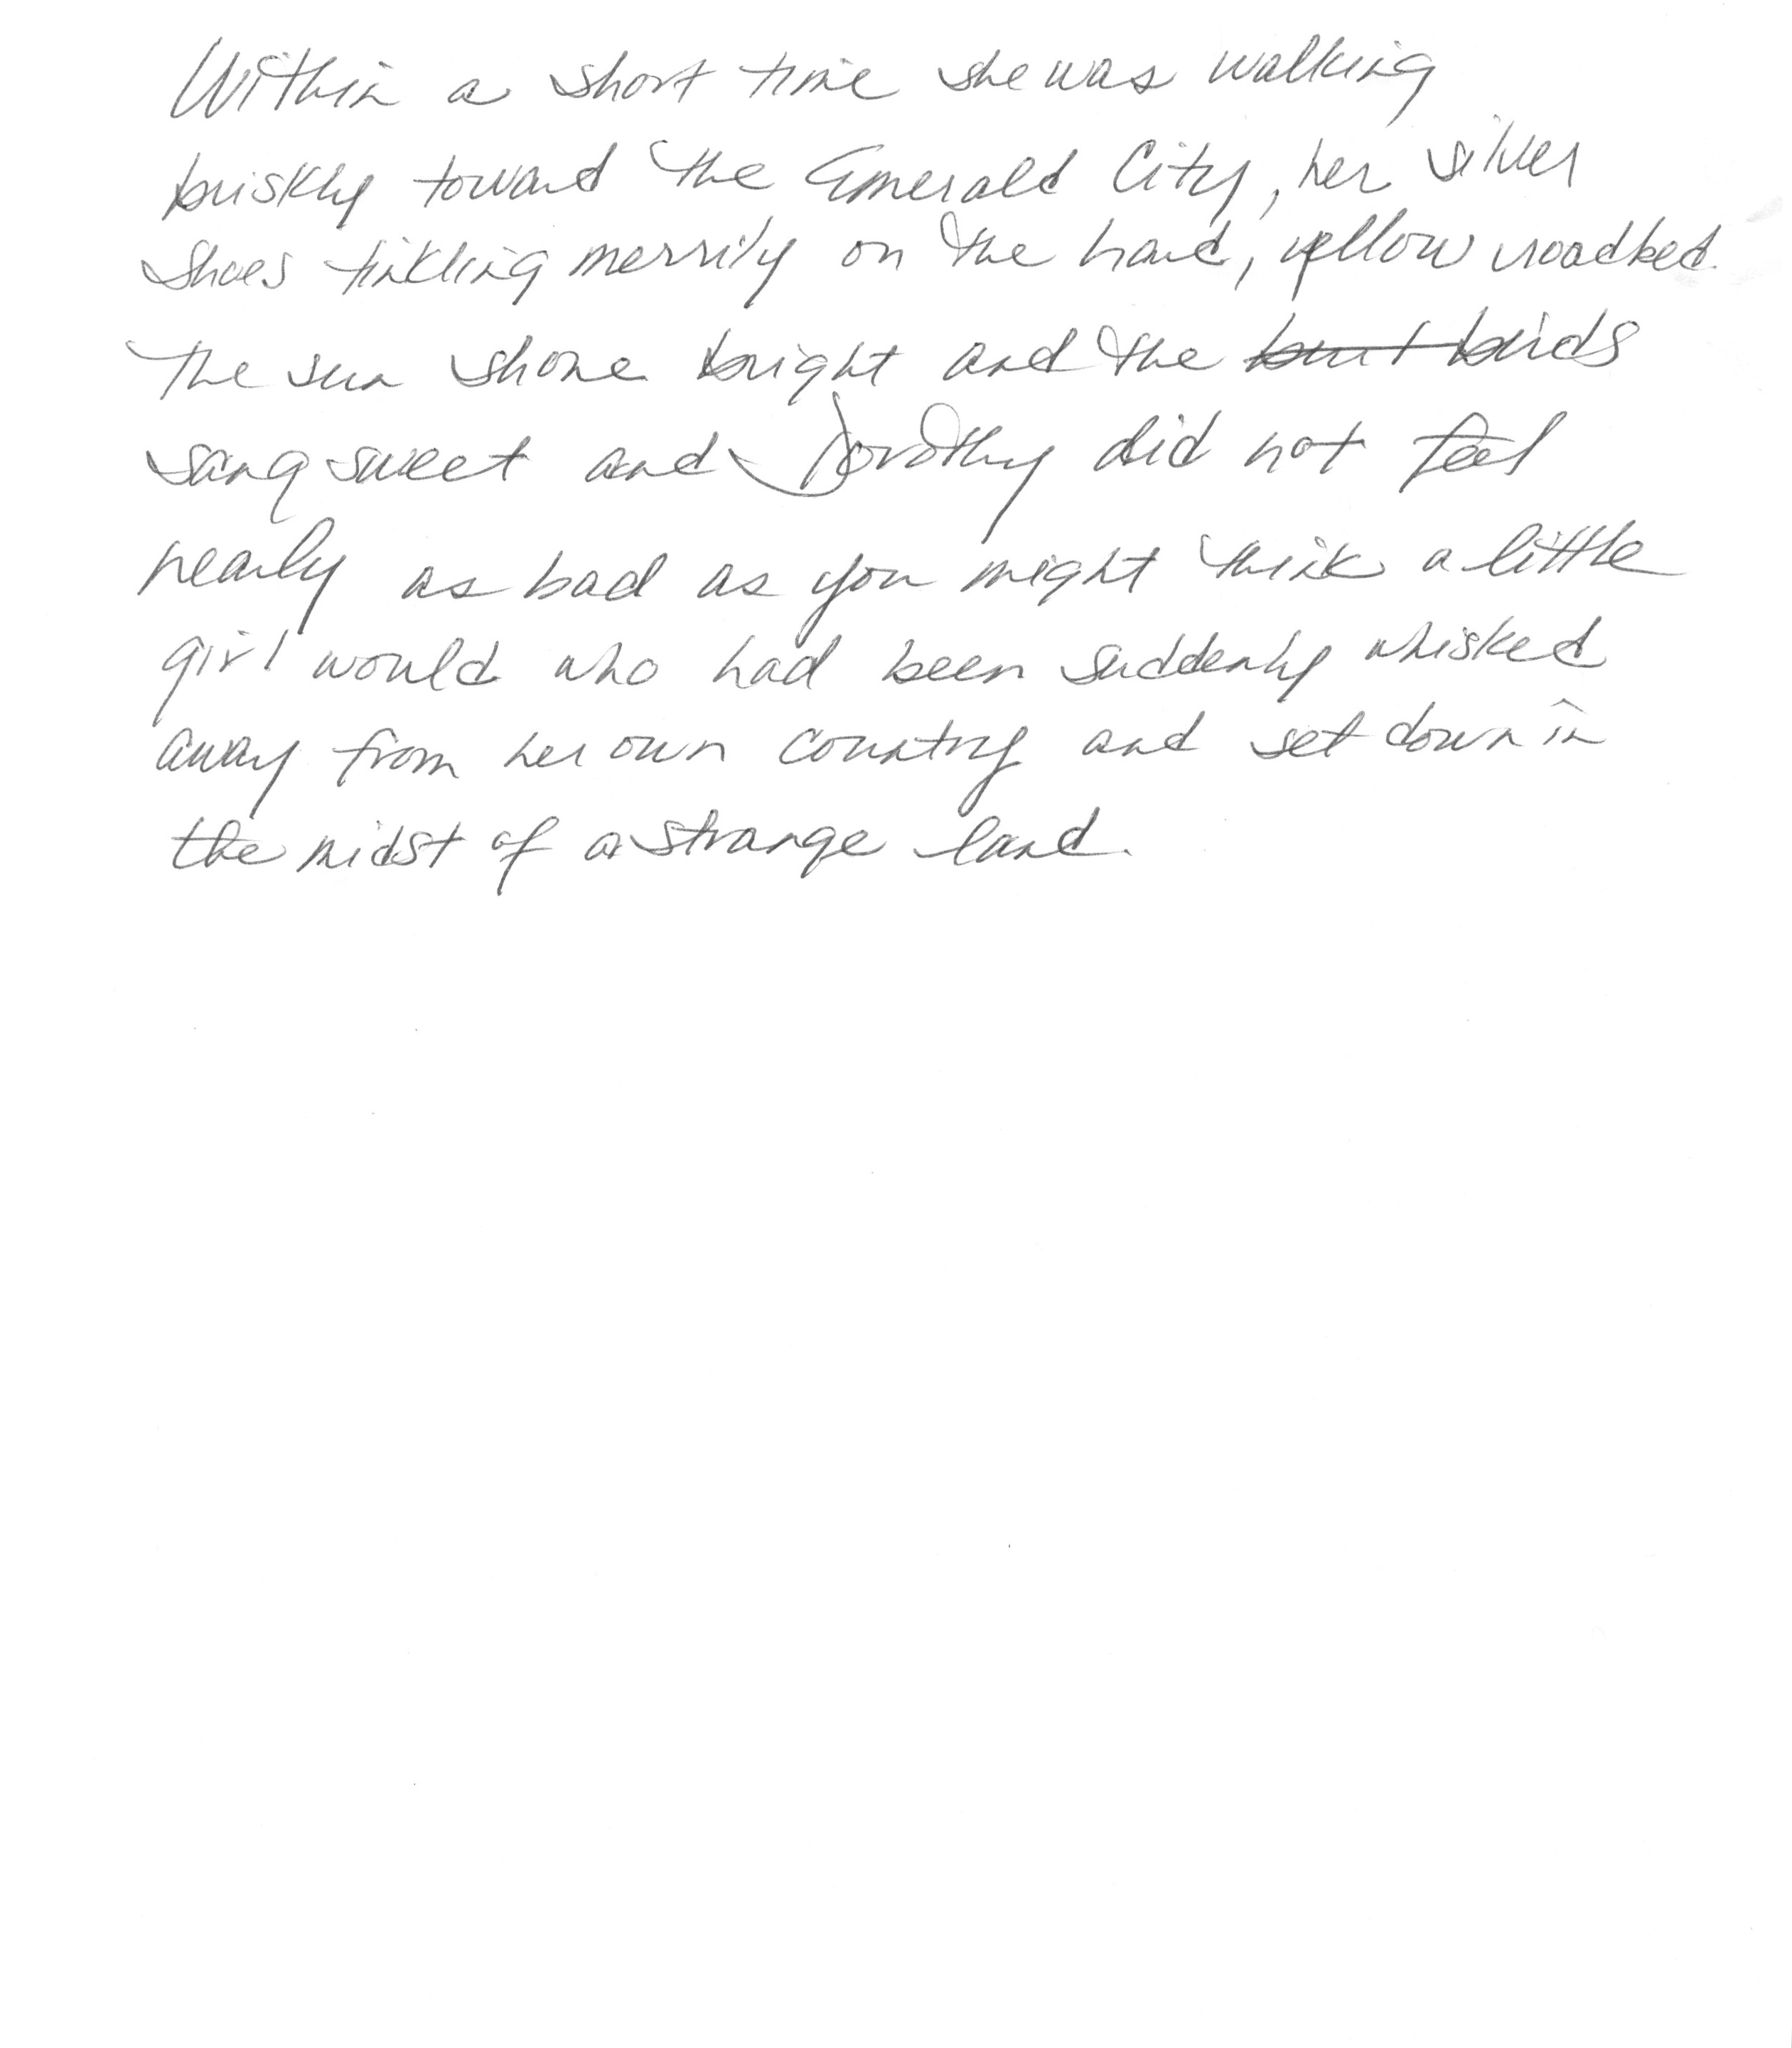 Within a short time she was walking
briskly toward the Emerald City, her silver
shoes tinkling merrily on the hard, yellow roadbed.
The sun shone bright and the birds
sang sweet and Dorothy did not feel
nearly as bad as you might think a little
girl would who had been suddenly whisked
away from her own country and set down in
the midst of a strange land.